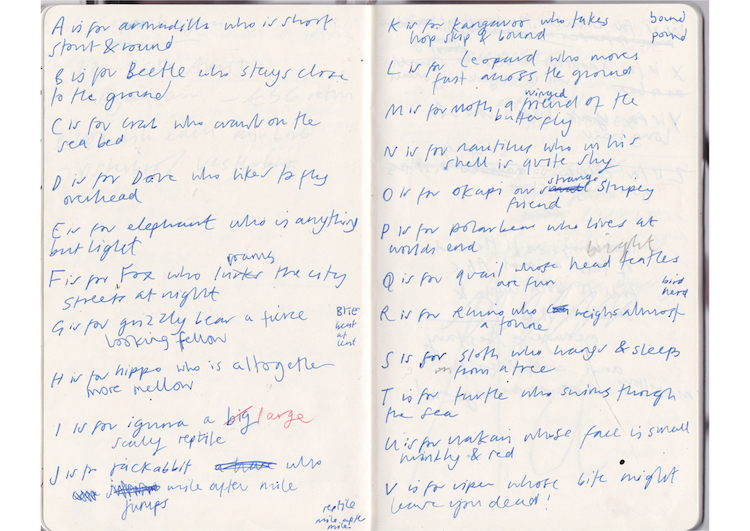 A is for armadillo who is short
stout & round
B is for Beetle who stays close
to the ground
C is for crab who crawls on the
sea bed
D is for Dove who likes to fly
overhead
E is for elephant who is anything
but light
prowls
F is for Fox who lurks the city
streets at night
G is for grizzly bear a fierce
looking fellow
BITE
beat
at
least
H is for hippo who is altogether
more mellow
I is for iguna a big large
scaly reptile
J is for jackabbit who
mile after mile
jumps
reptile
mile after
mile
K is for kangaroo who takes
hop skip & bound
bound
pound
L is for Leopard who moves
fast across the ground
winged
M is for moth, a friend of the
butterfly
N is for nautilus who in his
shell is quite shy
strange
O is for okapi our stripey
friend
P is for polar bear who lives at
worlds end
bright
Q is for quail whose head feathers
are fun
bird
herd
R is for Rhino who weighs almost
a tonne
S is for sloth who hangs & sleeps
from a tree
T is for turtle who swims though
the sea
U is for uakari whose face is small
& red
V is for viper whose bite might
leave you dead!